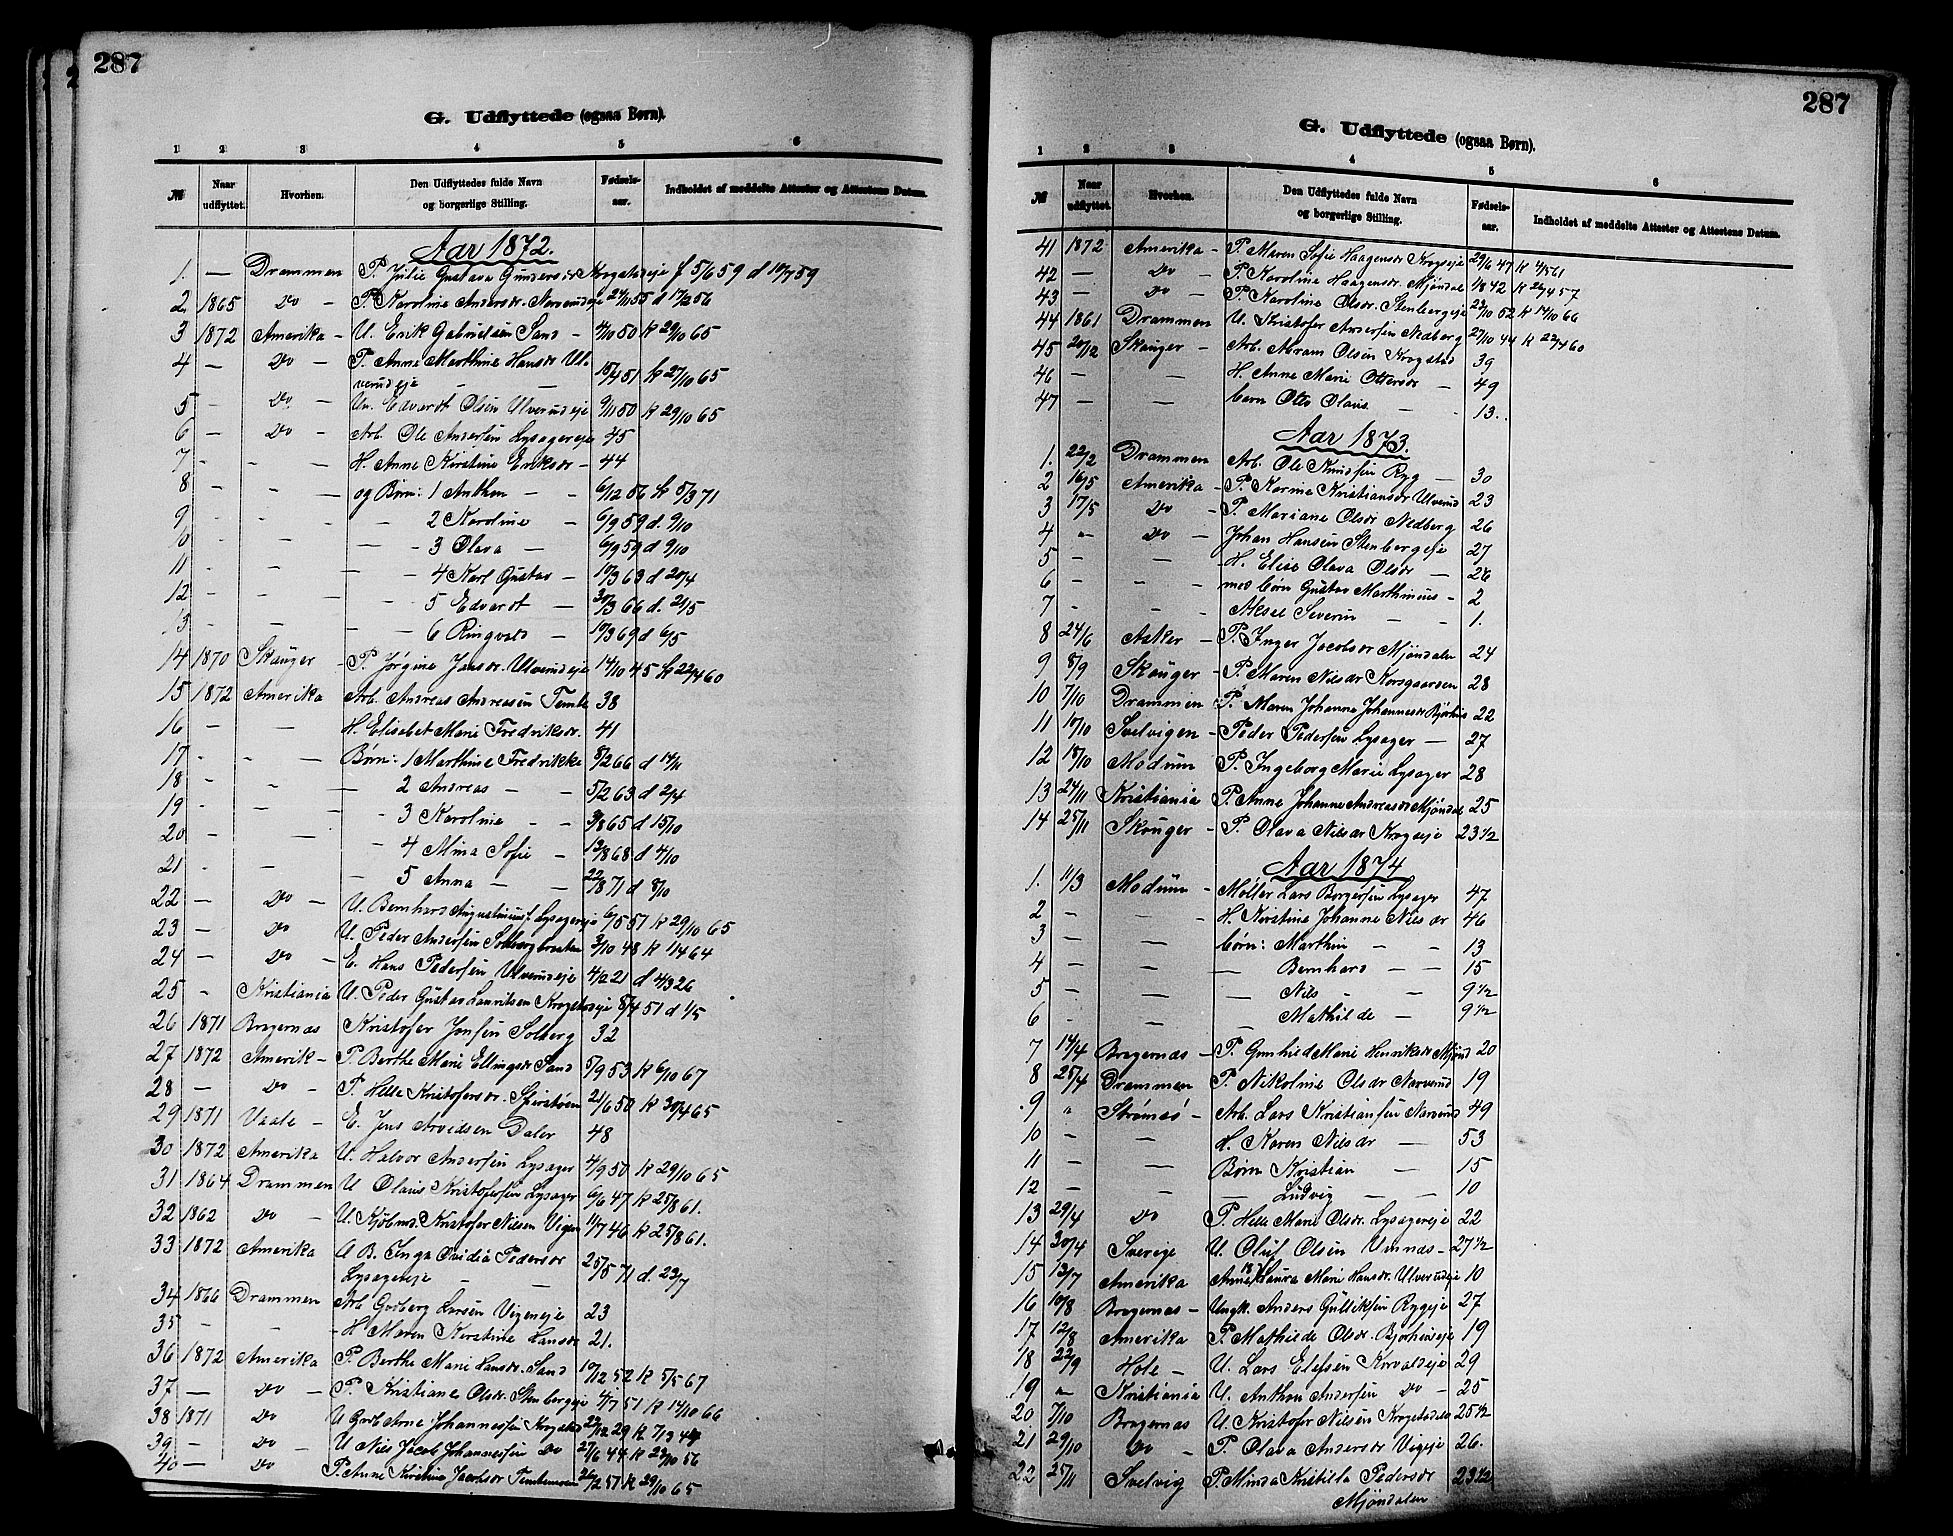 287
G. Udflyttede (ogsaa Børn).
1 2 3 4 5 6
№ Naar udflyttet. Hvorhen. Den Udflyttedes fulde Navn og borgerlige Stilling. Fødsels-aar. Indholdet af meddelte Attester og Attestens Datum.
Aar 1872.
1. — Drammen P. Julie Gustava Gundersdr Krogstadeje f 5/6 59 d 10/7 59
2. 1865 Do — P. Karoline Andersdr. Narverudeje 24/11 55 d 17/2 56
3 1872 Amerika — U. Erik Gabrielsen Sand — 4/10 50 k 29/10 65
4 — Do — P. Anne Marthine Hansdr Ul-
verudeje — — 18/4 51 k 27/10 65
5 - Do — Un. Edvardt Olsen Ulverudeje 9/11 50 k 29/10 65
6 — Do — Arb. Ole Andersen Lysagereje 45
7 - - — H. Anne Kirstine Eriksdr — 44
8 - - — og Børn: 1 Anthon — - 6/12 56 k 5/3 71
9 - - - — - 2 Karoline — 6/9 59 d. 9/10
10 - - — - 3 Olava — 6/9 59 d 9/10
11 - - - — - 4 Karl Gustav — 10/3 63 d 20/4
12 - - - — - 5 Edvardt — 30/3 66 d. 21/5
13 - - — - 6 Ringvald — 10/3 69 d 6/5
14 1870 Skauger — P. Jørgine Jansdr. Ulverudeje 14/10 45 k 22/4 60
15 1872 Amerika Arb. Andreas Andreasen Temte 38
16 - — H. Elisabet Marie Fredriksdr. 41
17 - - — Børn: 1 Marthine Fredrikke 8/2 66 d 14/11
18 - - — 2 Andreas — - 5/2 63 d 2/4
19 - - — - 3 Karoline - - 3/8 65 d 15/10
20 - — - 4 Mina Sofie — 12/8 68 d 4/10
21 - - — - 5 Anna — - 22/8 71 d 8/10
22 — Do — U. Bernhard Augustinius. Lysagereje 6/5 51 k 29/10 65
23 — Do U. Peder Andersen Solbergbraaten 3/10 48 k 1/4 64
24 — Do — E. Hans Pedersen Ulverudeje 4/12 21 d 4/3 26
25 - Kristiania U. Peder Gustav Lauritsen Krogstadeje 8/4 51 d 1/5
26 1871 Bragernas Kristofer Jonsen Solberg 32
27 1872 Amerik — P. Berthe Marie Ellingsdr Sand 5/9 53 k 6/10 67
28 — Do — P. Helle Kristofersdr. 21/6 50 k 30/4 65
29 1871 Vaale — E. Jens Arvidsen Daler 48
30 1872 Amerika U. Halvor Andersen Lysager 4/9 50 k 29/10 65
31 1864 Drammen U Olaus Kristofersen Lysager 6/6 47 k 25/8 61.
32 1862 Do — U. Kjøbmd. Kristofer Nilsen Vigen 11/7 46 k 25/8 61.
33 1872 Amerika U B. Inga Ovidia Pedersdr
Lysagereje — — 25/5 71 d. 23/7
34 1866 Drammen Arb Godberg Larsen Vigeneje 23
35 - - — H Maren Kirstine Larsdr 21.
36 1872 Amerika P. Berthe Marie Larsdr. Sand 10/12 52 k 5/5 67
37 — Do — P. Kristiane Olsdr. Stenbergeje 4/7 51 k 14/10 66
38 1871 Do U Godb Arne Johannessen Krogstad 22/12 29 k 7/13 44
39 — Do U Niels Jacob Johannessen Do 27/6 44 k 23/10 56
40 — Do P. Anne Kirstine Jacobsdr Temtemoen 26/2 51 k 29/10 65
287
G. Udflyttede (ogsaa Børn).
1 2 3 4 5 6
№ Naar udflyttet. Hvorhen. Den Udflyttedes fulde Navn og borgerlige Stilling. Fødsels-aar. Indholdet af meddelte Attester og Attestens Datum.
41 1872 Amerika — P. Maren Sofie Haagensdr Krogseje 29/6 47 k 4/5 61
42 — Do — P. Karoline Haagensdr. Mjøndal 1842 k 26/4 57
43 — Do — P. Karoline Olsdr. Stenbergeje 22/10 52 k 14/10 66
44 1861 Drammen U. Kristofer Andersen Nedberg 27/10 44 k 22/4 60
45 20/12 Skauger — Arb. Abram Olsen Krogstad 39
46 — — H. Anne Marie Ottersdr — 49
47 - — børn Otto Olaus — - 13.
Aar 1873.
1. 22/2 Drammen Arb. Ole Knudsen Ryg — 30
2 16/5 Amerika — P. Karine Kristiansdr Ulverud 23
3 17/5 Do — P. Mariane Olsdr Nedberg 26
4 - Do — Johan Hansen Stenbergeje 27
5 - — H. Elise Olava Olsdr — 26
6 - - — med børn Gustav Marthinius — 2
7 - - — Aksel Severin — - 1.
8 24/6 Asker — P. Inger Jacobsdr Mjøndalen 24
9 8/9 Skouger — P. Maren Nilsdr Korsgaarden 28
10 7/10 Drammen P. Maren Johanne Johannesdr Bjørhus 22
11 10/10 Svelvigen — Peder Pedersen Lysager — 27
12 18/10 Modum P. Ingeborg Marie Lysager 28
13 24/11 Kristiania P. Anne Johanne Andreasdr Mjøndal 25
14 25/11 Skouger — P. Olava Nilsdr Krogseje 23 1/2
Aar 1874
1. 11/3 Modum — Møller Lars Borgersen Lysager 47
2 - — H. Kirstine Johanne Nilsdr 46
3 - — børn: Marthin — - 13
4 — — — Bernhard — — 15
5 — — — Nils - — 9 1/2
6 - — — Mathilde — 9 1/2
7 14/4 Bragernas — P. Gunhild Marie Henriksdr Mjønd 20
8 25/4 Drammen P. Nikoline Olsdr Narverud 19
9 " Strømsø — Arb. Lars Kristiansen Narverud 49
10 - — H. Karen Nilsdr — 53
11 — — Børn Kristian — 15
12 — — — Ludvig — — 10
13 29/4 Do P. Helle Marie Olsdr. Lysagereje 22
14 30/4 Sverige U. Oluf Olsen Vinnas — 27 1/2
15 13/7 Amerika Anne Laura Marie Hansdr. Ulverudeje 10
16 10/8 Bragernas — Ungk. Anders Gulliksen Rygeje 27
17 12/8 Amerika P. Mathilde Olsdr. Bjørhuseje 19
18 22/9 Hole — U. Lars Elefsen Korvaldeje 29
19 - Kristiania U. Anthon Andersen Do — 25
20 7/10 Bragernas U. Kristofer Nilsen Krogstadeje 25 1/2
21 29/10 Do — P. Olava Andersdr Vigeje 26.
22 25/11 Svelvig P. Minda Kristilla Pedersdr 23 1/2
Mjøndalen